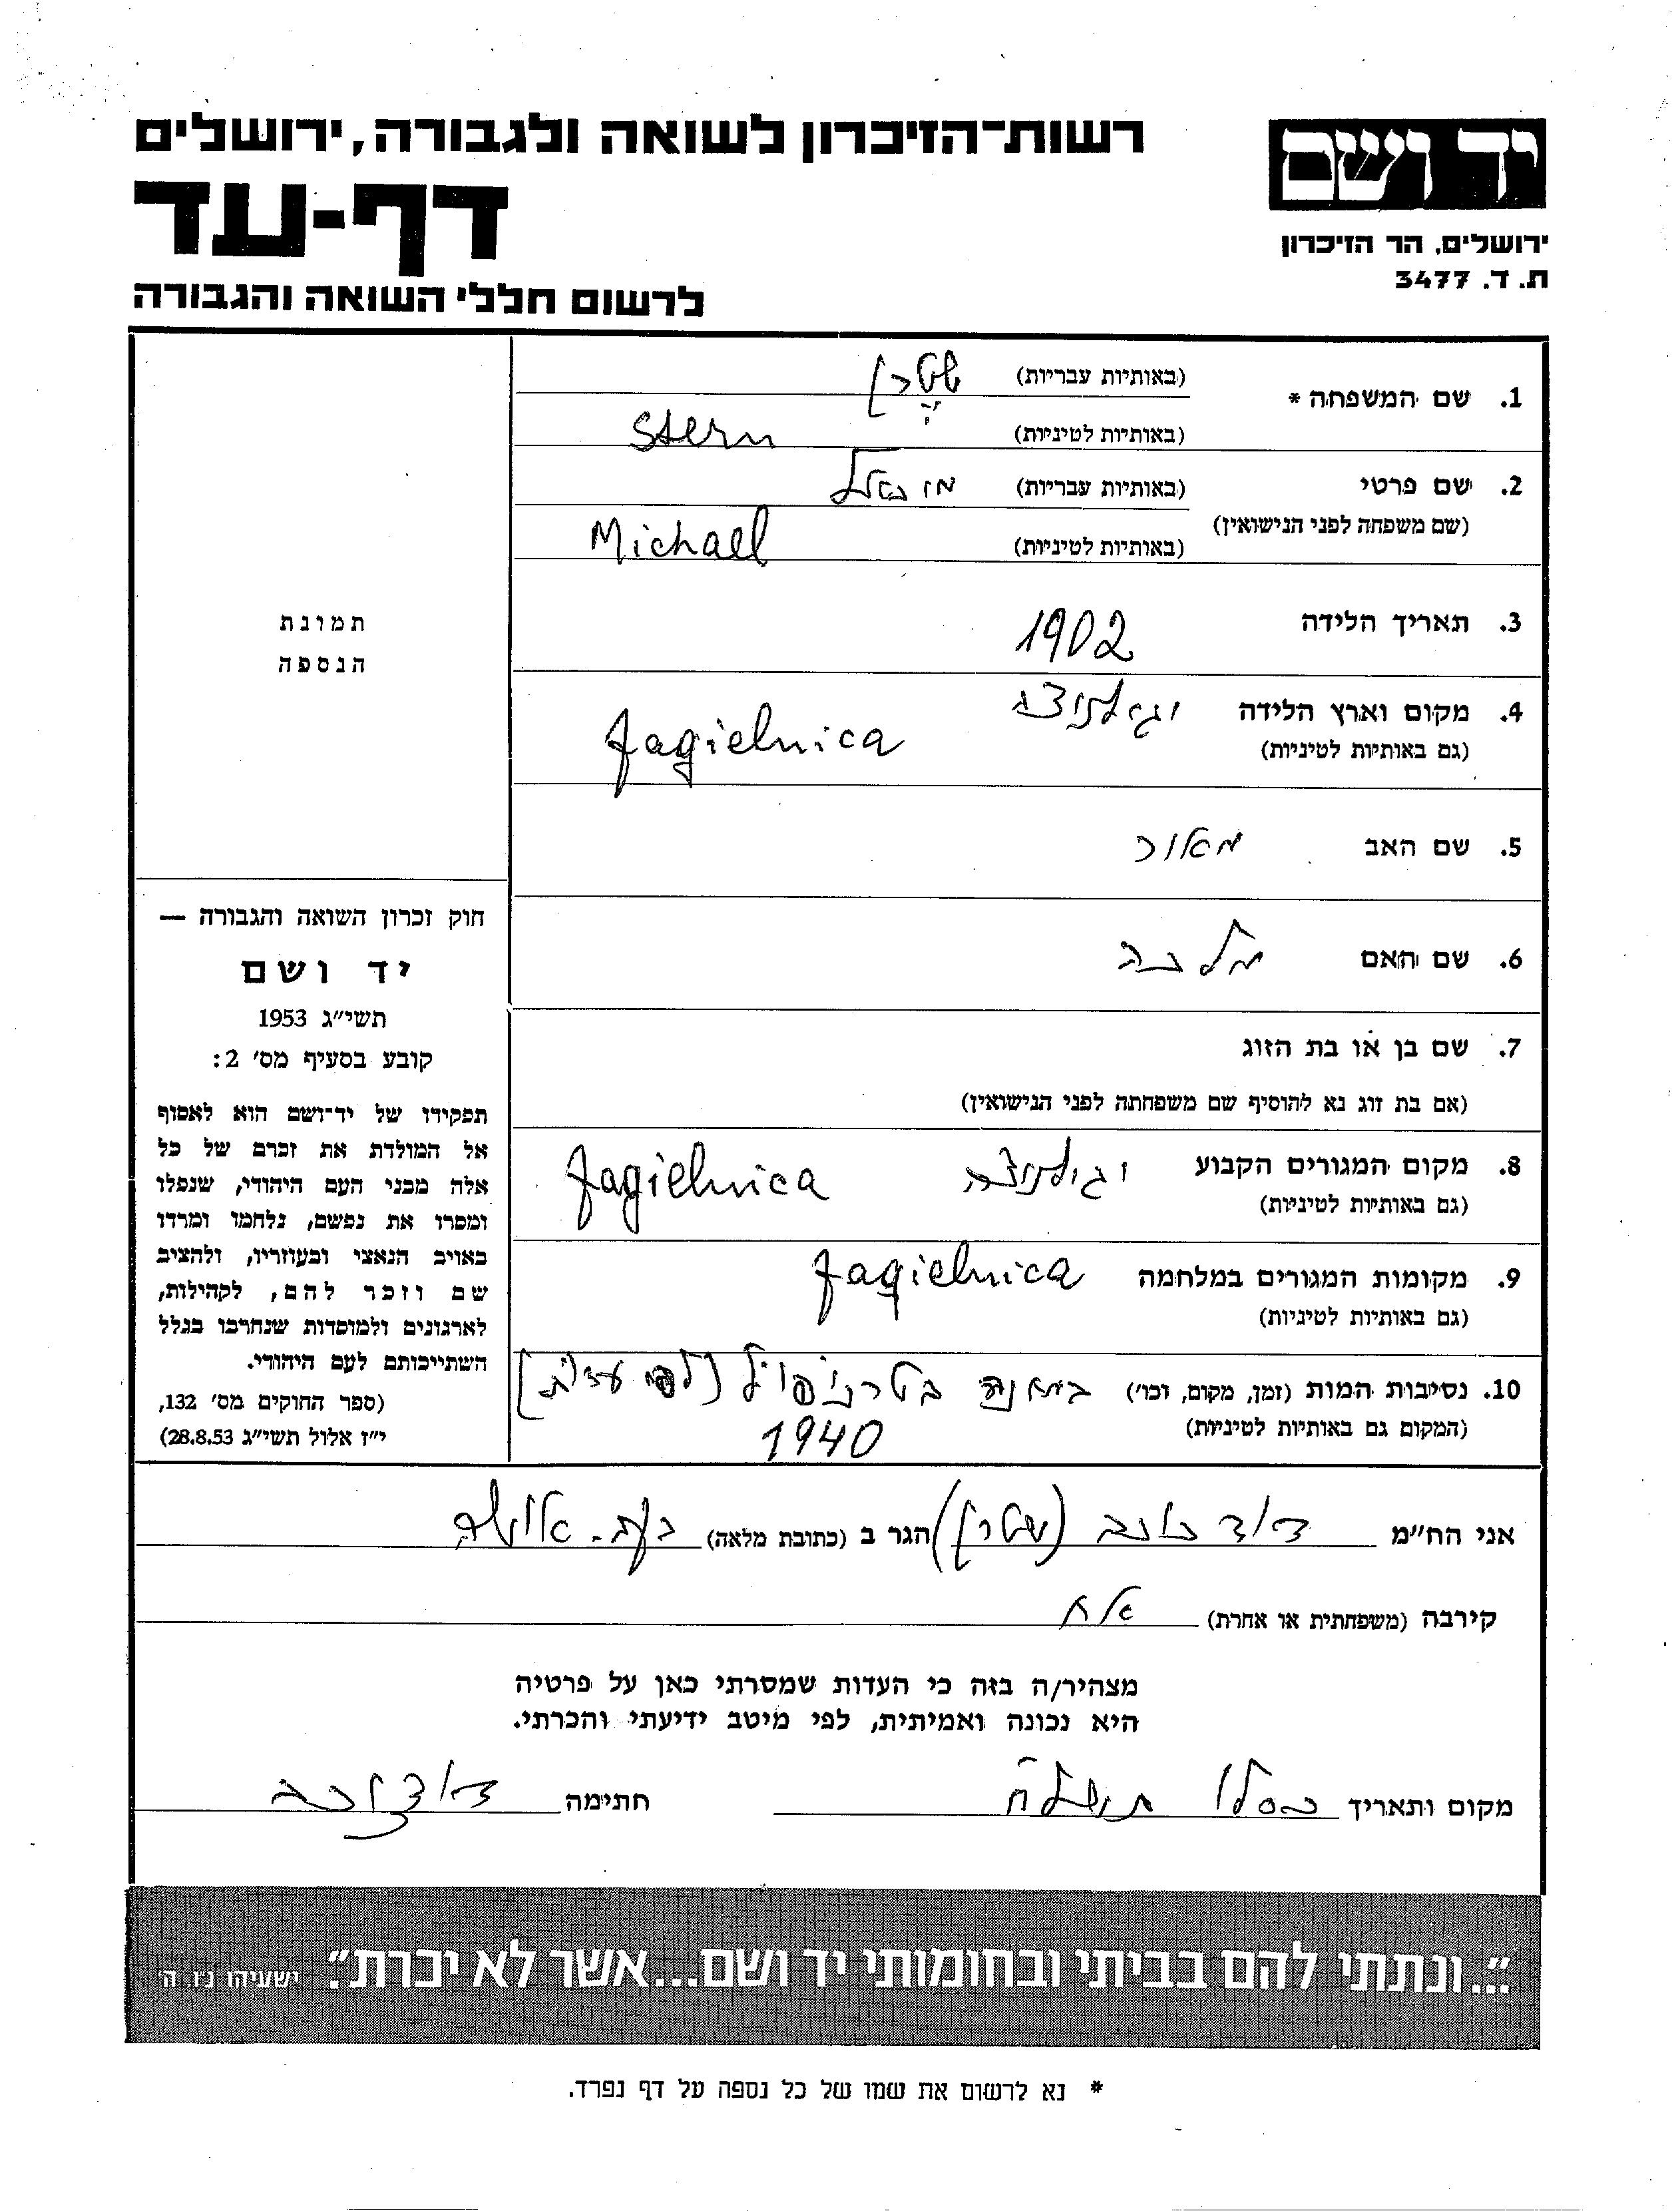 רשות־הזיכרון לשואה ולגבורה, ירושלים
דף-עד
לרשום חללי השואה והגבורה
יד ושם
ירושלים, הר הזיכרון
ת. ד. 3477
1. שם המשפחה *
(באותיות עבריות) שטרן
(באותיות לטיניות) Stern
2. שם פרטי
(שם משפחה לפני הנישואין)
(באותיות עבריות) מיכאל
(באותיות לטיניות) Michael
3. תאריך הלידה 1902
4. מקום וארץ הלידה Jagielnica
(גם באותיות לטיניות)
5. שם האב מאור
6. שם האם מלכה
7. שם בן או בת הזוג
(אם בת זוג נא להוסיף שם משפחתה לפני הנישואין)
8. מקום המגורים הקבוע Jagielnica
(גם באותיות לטיניות)
9. מקומות המגורים במלחמה Jagielnica
(גם באותיות לטיניות)
10. נסיבות המות (זמן, מקום, וכו׳) במחנה בטרנופול (לפי עדות)
(המקום גם באותיות לטיניות) 1940
תמונת
הנספה
חוק זכרון השואה והגבורה —
יד ושם
תשי״ג 1953
קובע בסעיף מס׳ 2:
תפקידו של יד־ושם הוא לאסוף
אל המולדת את זכרם של כל
אלה מבני העם היהודי, שנפלו
ומסרו את נפשם, נלחמו ומרדו
באויב הנאצי ובעוזריו, ולהציב
שם וזכר להם, לקהילות,
לארגונים ולמוסדות שנחרבו בגלל
השתייכותם לעם היהודי.
(ספר החוקים מס׳ 132,
י״ז אלול תשי״ג 28.8.53)
אני הח״מ דוד כוכב (שטרן) הגר ב (כתובת מלאה)
קירבה (משפחתית או אחרת) אח
מצהיר/ה בזה כי העדות שמסרתי כאן על פרטיה
היא נכונה ואמיתית, לפי מיטב ידיעתי והכרתי.
מקום ותאריך כסלו תשל״ח חתימה דוד כוכב
״...ונתתי להם בביתי ובחומותי יד ושם...אשר לא יכרת״. ישעיהו נ״ו, ה׳
* נא לרשום את שמו של כל נספה על דף נפרד.